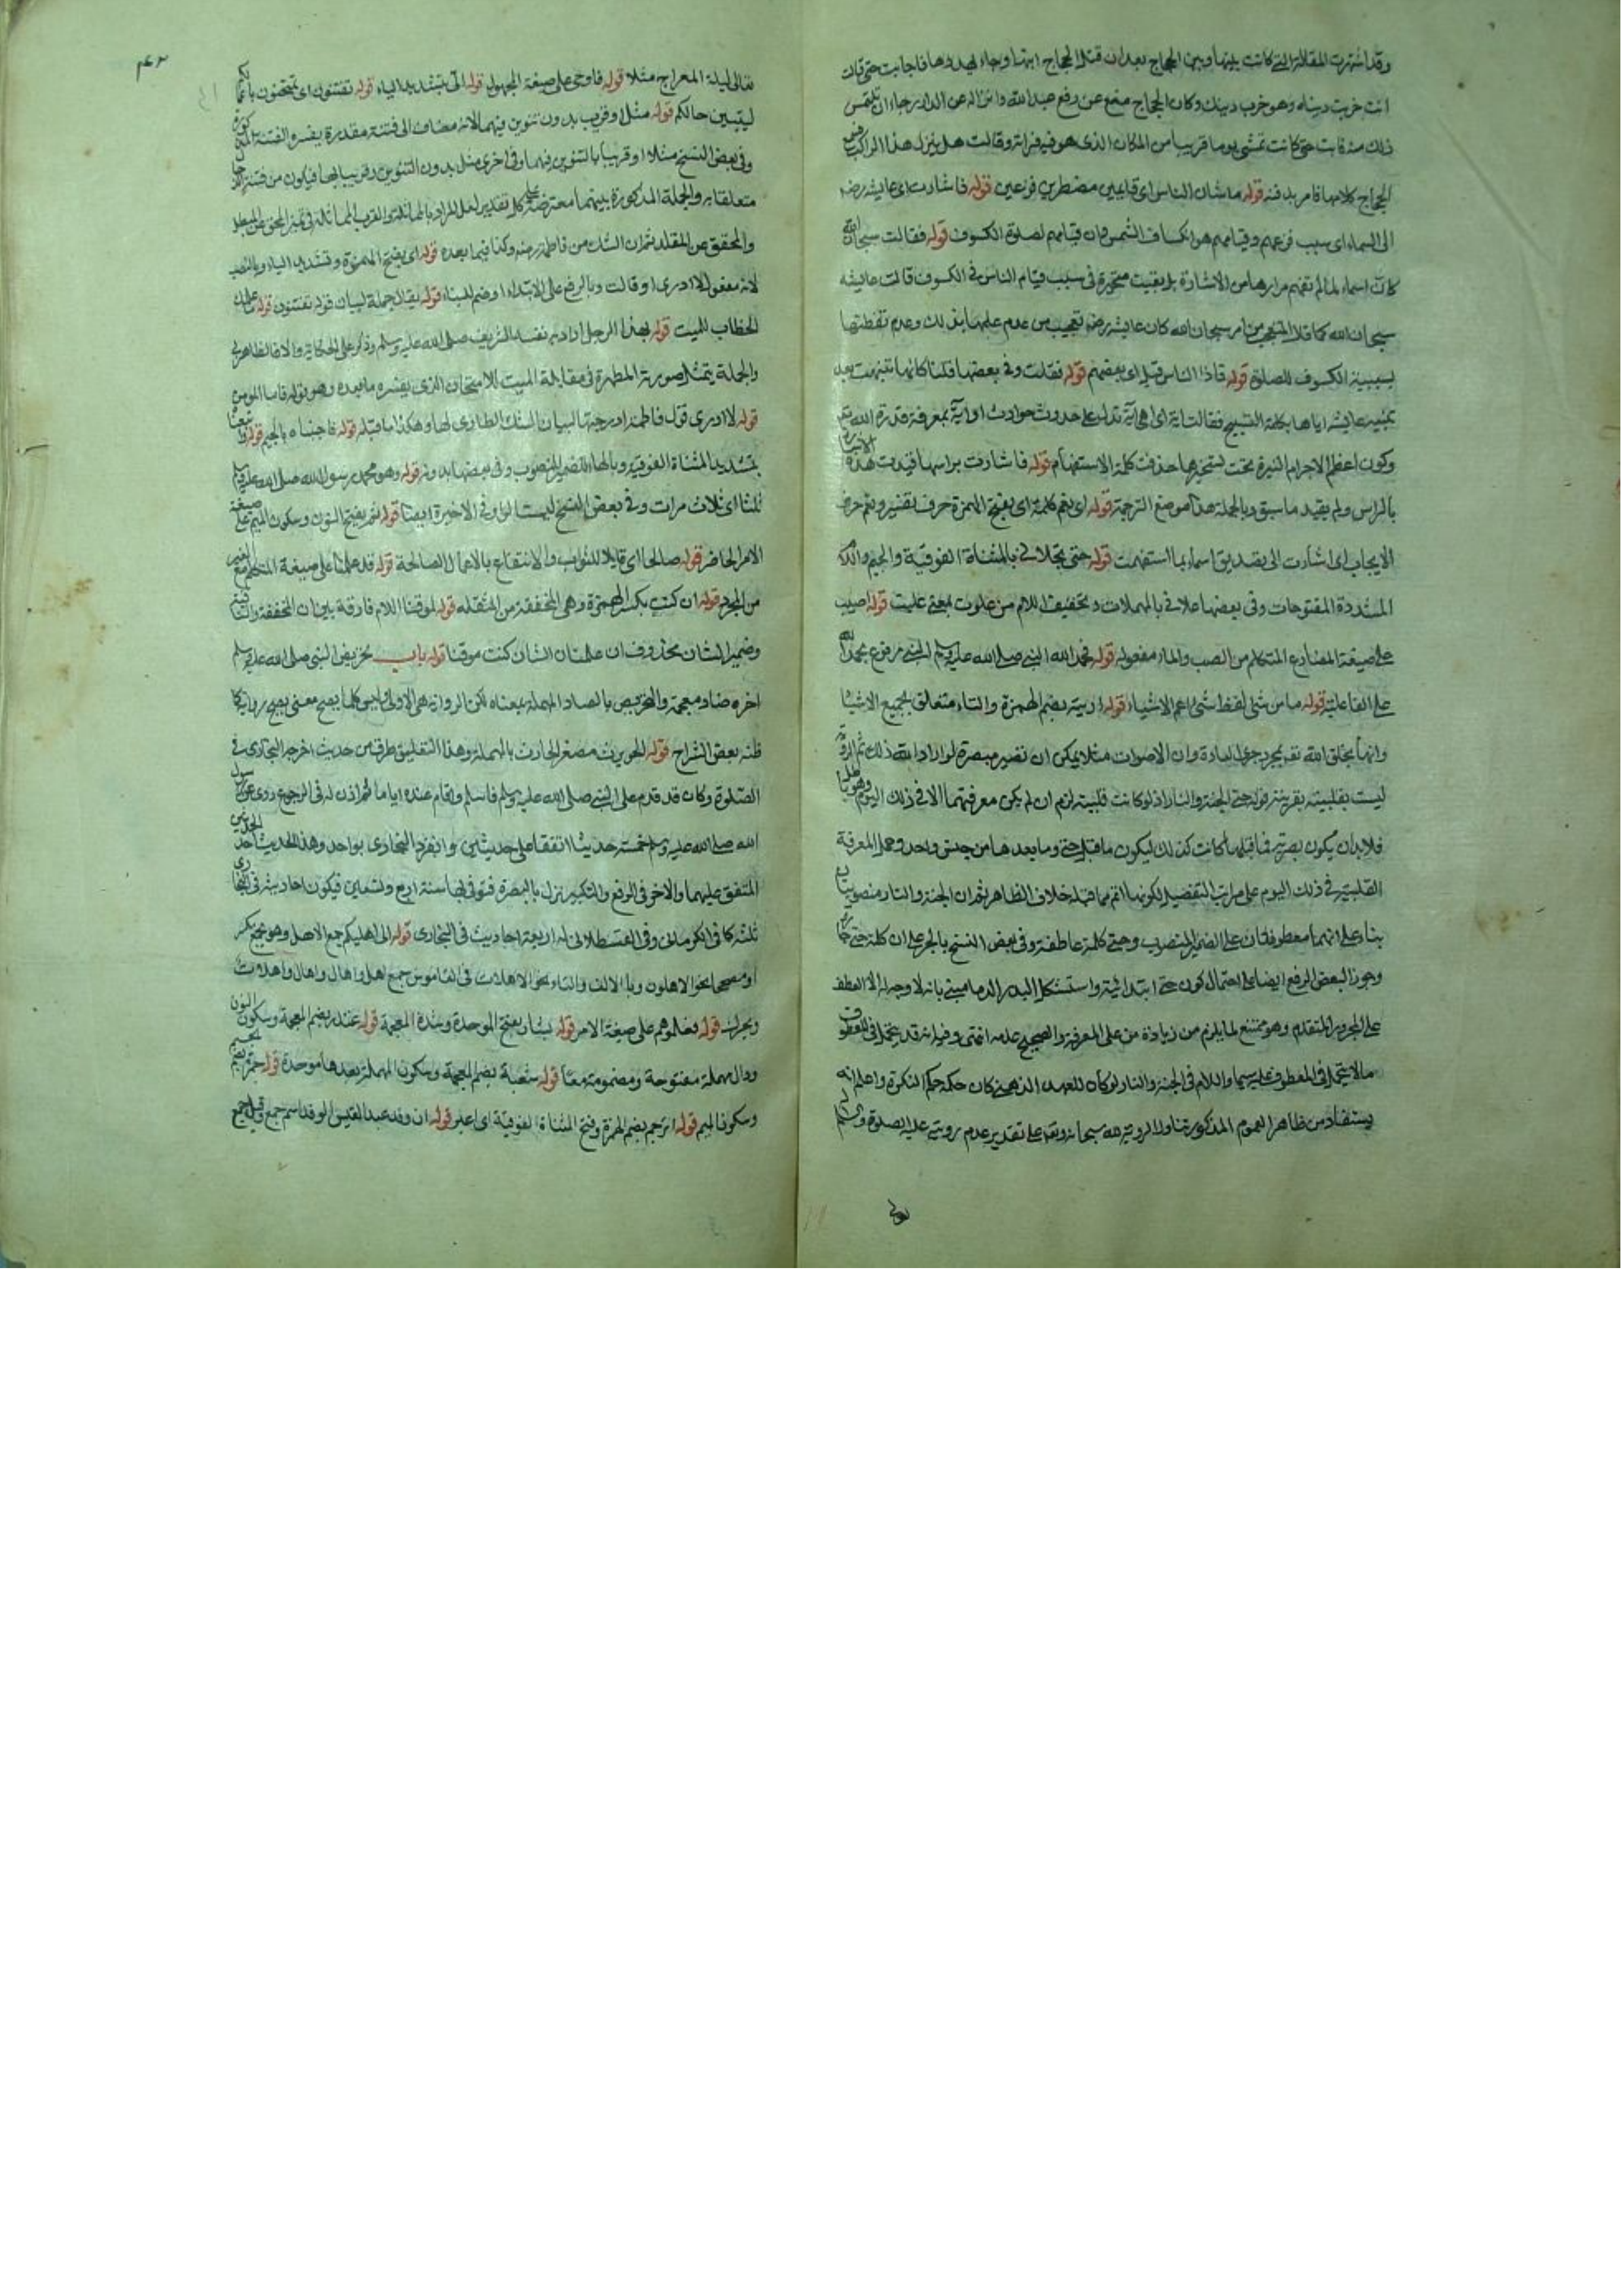 وقد اشتهرت المقالة التي كانت بينها وبين الحجاج بعد ان قتل الحجاج ابنها وجاء فاجابت حتى قال
انت خربت دنياه وهو خرب دينك وكان الحجاج منع عن دفع عبد الله وانزاله عن الدار رجاء ان تلتمس
ذلك منه فابت حتى كانت تمشي يوما قريبا من المكان الذي هو فيه فراته وقالت هل ينزل هذا الراكب
الحجاج كلامها فامر بدفنه قوله ما شان الناس اي قايمين مضطربين فزعين قوله فاشارت اي عايشه رضه
الى السماء اي سبب فزعهم وقيامهم هو انكساف الشمس فان قيامهم لصلوة الكسوف قوله فقالت سبحان الله
كانت اسماء لما لم تفهم مرادها من الاشارة بل بقيت متحيرة في سبب قيام الناس في الكسوف قالت عايشه
سبحان الله كما قال المتعجب من امر سبحان الله كان عايشه رضه تتعجب من عدم علمها بذلك وعدم تفطنها
بسببية الكسوف للصلوة قوله فاذا الناس قيام اي بعضهم قوله فقلت وفي بعضها قلنا كانها تنبهت بعد
تنبيه عايشه اياها بكلمة التسبيح فقالت اية اي اهي اية تدل على حدوث حوادث او اية بمعرفة قدرة الله تع
وكون اعظم الاجرام النيرة تحت تسخيرها حذفت كلمة الاستفهام قوله فاشارت براسها قيدت هذه الاشارة
بالراس ولم يقيد ما سبق وبالجملة هذا موضع الترجمة قوله اي نعم كلمة اي بفتح الهمزة حرف تفسير ونعم حرف
الايجاب اي اشارت الى تصديق اسماء بما استفهمت قوله حتى تجلاني بالمثناة الفوقية والجيم واللام
المشددة المفتوحات وفي بعضها علاني بالمهملات وتخفيف اللام من علوت بمعنى علبت قوله اصب
على صيغة المضارع المتكلم من الصب والماء مفعوله قوله فحمد الله النبي صلى الله عليه وسلم النبي مرفوع بحمد الله
على الفاعلية قوله ما من شئ لفظ شئ اعم الاشياء قوله اريته بضم الهمزة والتاء متعلق بجميع الاشيا
وانها بخلق الله تع بمجرد جري العادة وان الاصوات مثلا يمكن ان تصير مبصرة لو اراد الله ذلك ثم الرؤية
ليست بقلبية بقرينة قوله حتى الجنة والنار اذ لو كانت قلبية لزم ان لم يكن معرفتهما الا في ذلك اليوم
فلا بد ان يكون بصرية فيما قبلها كانت كذلك ليكون ما قبل حتى وما بعدها من جنس واحد وحمل المعرفة
القلبية في ذلك اليوم على مراتب التفصيل لكونها اتم مما قبله خلاف الظاهر ثم ان الجنة والنار منصوبتان
بناء على انهما معطوفتان على الضمير المنصوب وحتى كلمة عاطفة وفي بعض النسخ بالجر على ان كلمة حتى جارة
وجوز البعض الرفع ايضا على احتمال كون حتى ابتدائية واستشكل البدر الدماميني بانه لا وجه له الا العطف
على المجرور المتقدم وهو ممتنع لما يلزم من زيادة من على المعرفة والصحيح عدمه انتهى وفيه انه قد يتحمل في المعطوف
ما لا يتحمل في المعطوف عليه سيما واللام في الجنة والنار لو كان للعهد الذهني كان حكمه حكم النكرة واعلم انه
يستفاد من ظاهر العموم المذكور تناول الرؤية لله سبحانه وتع على تقدير عدم رؤيته عليه الصلوة والسلام
۴۲
تعالى ليلة المعراج مثلا قوله فاوحي على صيغة المجهول قوله الي بتشديد الياء قوله تفتنون اي تمتحنون
ليتبين حالكم قوله مثل او قريب بدون تنوين فيهما لانه مضاف الى فتنة مقدرة يفسره الفتنة
وفي بعض النسخ مثلا او قريبا بالتنوين فيهما وفي اخرى مثل بدون التنوين وقريبا بها فيكون من فتنة
متعلقا به والجملة المذكورة بينهما معترضة كل تقدير لعل المراد بالمماثلة والقرب المماثلة في تميز المحق عن المبطل
والمحقق عن المقلد ثم ان الشك من فاطمة رضه وكذا فيما بعده قوله اي بفتح الهمزة وتشديد الياء وبالنصب
لانه مفعول لا ادري او قالت وبالرفع على الابتداء او ضم للبناء قوله يقال جملة لبيان قوله تفتنون قوله علمك
الخطاب للميت قوله بهذا الرجل اراد به نفسه الشريف صلى الله عليه وسلم وذكر على الحكاية والا فالظاهر بي
والجملة يتمثل صورته المطهرة في مقابلة الميت للامتحان الذي يفسره ما بعده وهو قوله فاما المومن
قوله لا ادري قول فاطمة ادرجتها لبيان الشك الطاري لها وهكذا ما قبله قوله فاجبناه بالجيم قوله واتبعنا
بتشديد المثناة الفوقية وبالهاء الضمير المنصوب وفي بعضها بدونه قوله وهو محمد رسول الله صلى الله عليه وسلم
ثلثا اي ثلاث مرات وفي بعض النسخ ليست الواو في الاخيرة ايضا قوله نم بفتح النون وسكون الميم على صيغة
الامر الحاضر قوله صالحا اي قابلا للثواب والانتفاع بالاعمال الصالحة قوله قد علمنا على صيغة المتكلم مع الغير
من المجرد قوله ان كنت بكسر الهمزة وهي المخففة من المثقله قوله لموقنا اللام فارقة بين ان المخففة والنافية
وضمير الشان محذوف ان علمنا ان الشان كنت موقنا قوله باب تحريض النبي صلى الله عليه وسلم
اخره ضاد معجمة والتحريص بالصاد المهملة بمعناه لكن الروايه هي الاولى وليس كلما يصح معنى يصح رواية كما
ظنه بعض الشراح قوله الحويرث مصغر الحارث بالمهملة وهذا التعليق طرف من حديث اخرجه البخاري في
الصلوة وكان قد قدم على النبي صلى الله عليه وسلم فاسلم واقام عنده اياما ثم اذن له في الرجوع روي عن رسول
الله صلى الله عليه وسلم خمسة عشر حديثا اتفقا على حديثين وانفرد البخاري بواحد وهذا الحديث احد الحديثين
المتفق عليهما والاخر في الرفع والتكبير نزل بالبصرة فتوفي بها سنة اربع وتسعين فيكون احاديثه في البخاري
ثلثه كما في الكرماني وفي القسطلاني له اربعة احاديث في البخاري قوله الى اهليكم جمع الاهل وهو يجمع مكسرا
او مصححا نحو الاهلون وبالالف والتاء نحو الاهلات في القاموس جمع اهل واهال واهال واهلات
ويحرك قوله فعلموهم على صيغة الامر قوله بشار بفتح الموحدة وشدة المعجمة قوله غندر بضم المعجمة وسكون النون
ودال مهملة مفتوحة ومضمومة معا قوله شعبة بضم المعجمة وسكون المهملة بعدها موحدة قوله جمرة بجيم
وسكون الميم قوله اترجم بضم الهمزة وفتح المثناة الفوقية اي اعبر قوله ان وفد عبد القيس الوفد اسم جمع وقيل جمع